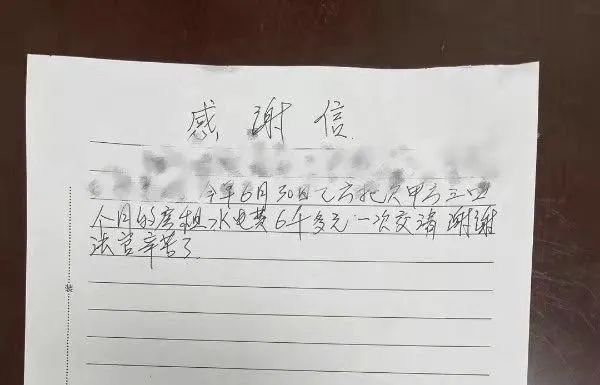 感谢信
今年6月30日乙方把欠甲方三四
个月的房租水电费6千多元一次交清 谢谢
法官辛苦了
装